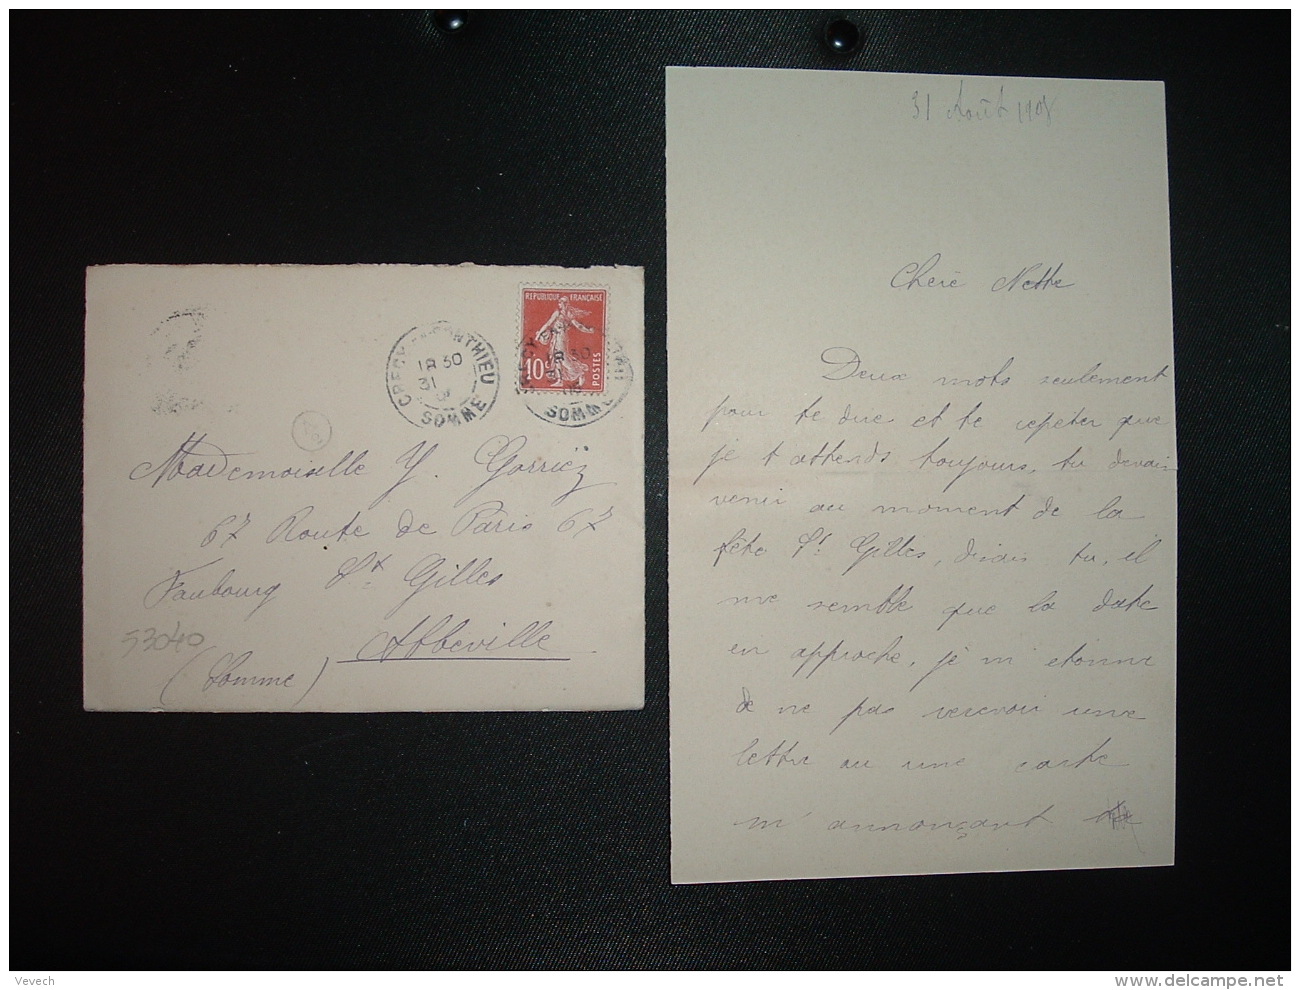 REPUBLIQUE FRANÇAISE
10c
POSTES
CRECY-EN-PONTHIEU
18 30
31
SOMME
SOMME
Mademoiselle Y. Gorriez
67 Route de Paris 67
Faubourg St Gilles
Abbeville
(Somme)
53040
31 Août 1908
Chère Nette
Deux mots seulement
pour te dire et te repeter que
je t'attends toujours, tu devais
venir au moment de la
fête St. Gilles, disais tu, il
me semble que la date
en approche, je m'etonne
de ne pas recevoir une
lettre ou une carte
m'annonçant
Vevech
delcampe.net